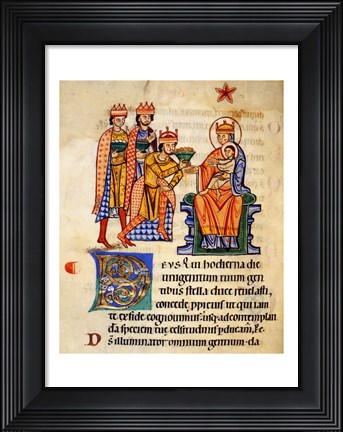 DEUS qui hodierna die
unigenitum tuum gen
tibus stella duce reuelasti,
concede ppicius ut qui iam
te ex fide cognouimus: usq; ad contemplan
da speciem tue celsitudinis pducam,
D s illuminator omnium gentium. da